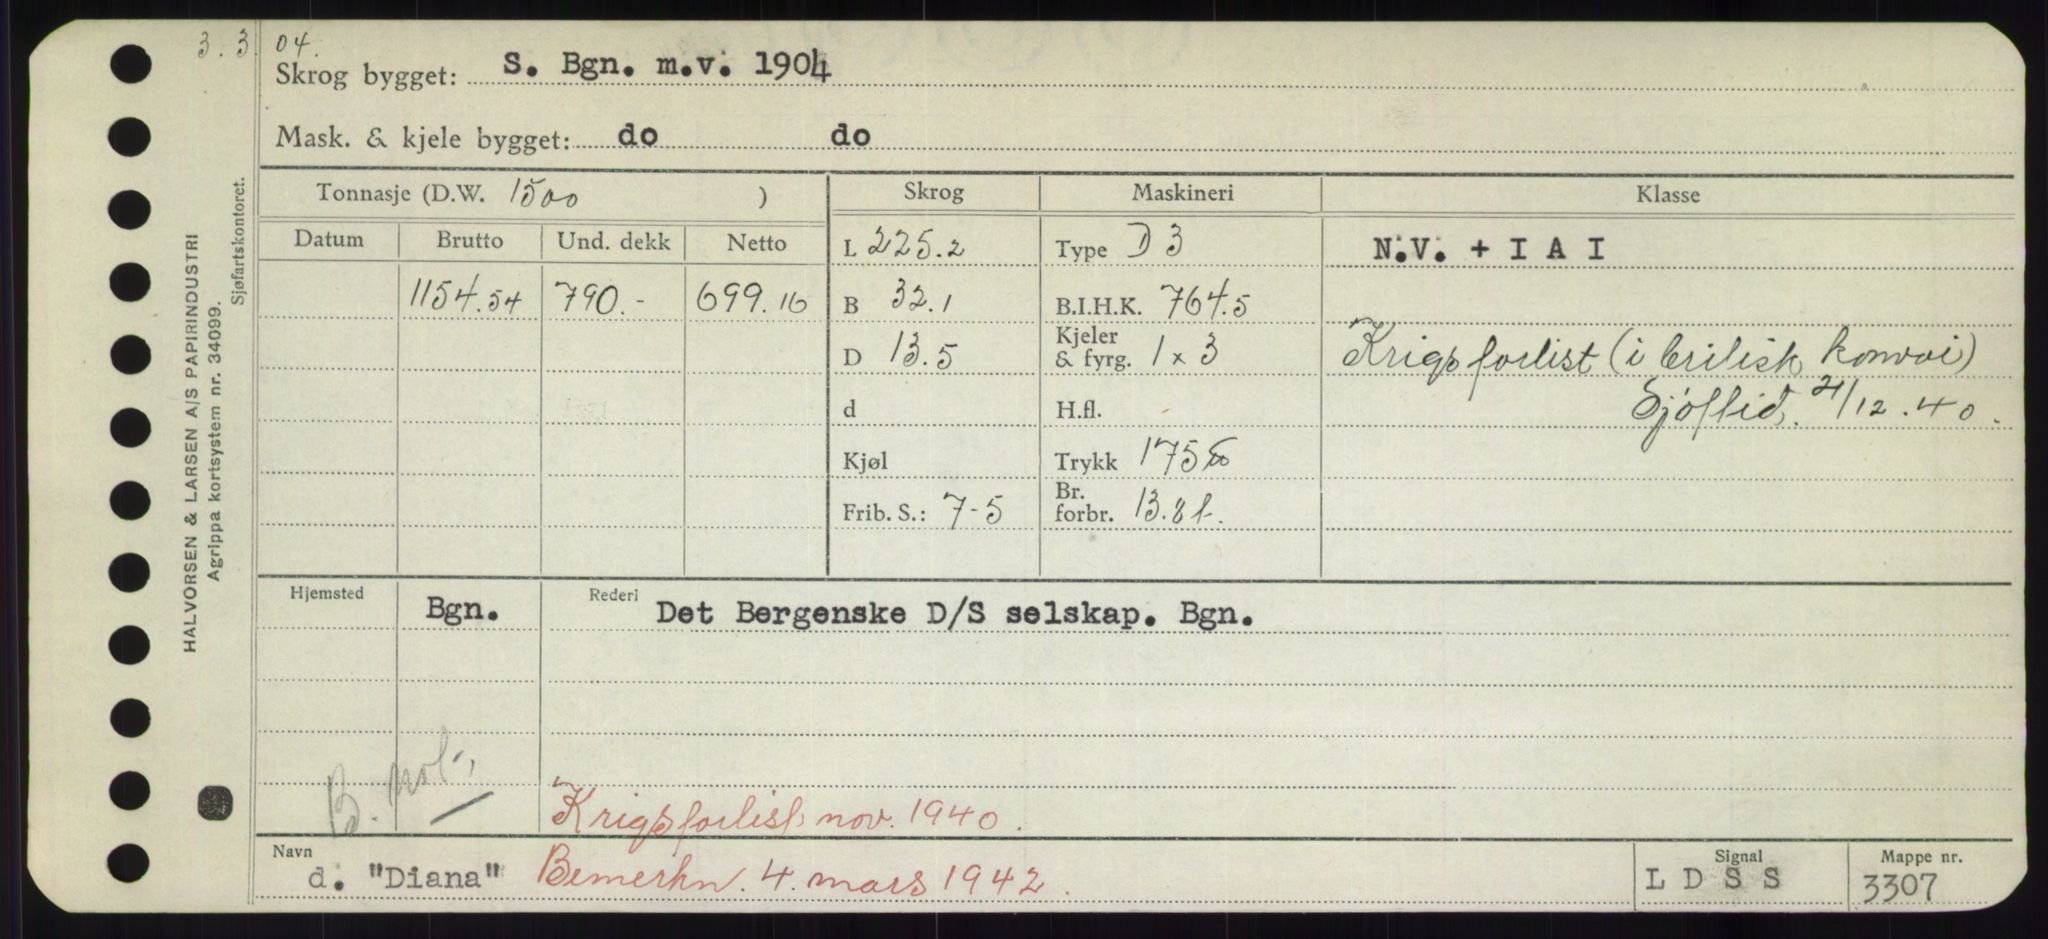 3. 3. 04.
Skrog bygget: S. Bgn. m.v. 1904
Mask. & kjele bygget: do do
Tonnasje (D.W. 1500 )
Skrog
Maskineri
Klasse
Datum Brutto Und. dekk Netto
L 225.2
Type D 3
N.V. + I A I
1154.54 790.- 699.16
B 32.1
B.I.H.K. 764.5
D 13.5
Kjeler
& fyrg. 1 x 3
Krigsforlist (i britisk konvoi)
d
H.fl.
Sjöftid. 21/12.40.
Kjøl
Trykk 175
Frib. S.: 7-5
Br.
forbr. 13.8 t.
Hjemsted Bgn.
Rederi Det Bergenske D/S selskap. Bgn.
B. not.
Krigsforlist nov. 1940.
Navn
d. "Diana" Bemerkn. 4. mars 1942.
Signal
L D S S
Mappe nr.
3307
HALVORSEN & LARSEN A/S PAPIRINDUSTRI
Agrippa kortsystem nr. 34099.
Sjøfartskontoret.